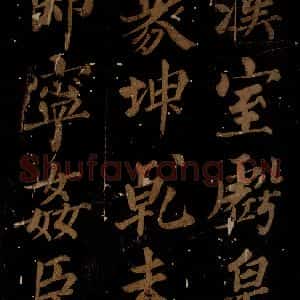 漢室虧皇
象坤乾未
即寧姦臣
Shufawang.CN